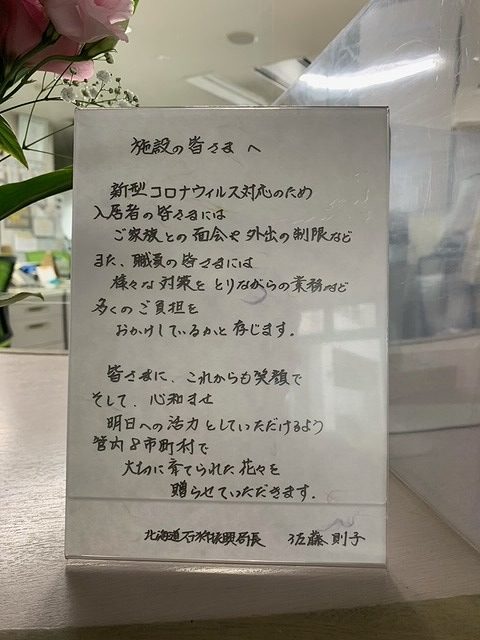 施設の皆さまへ
新型コロナウィルス対応のため
入居者の皆さまには
ご家族との面会や外出の制限など
また、職員の皆さまには
様々な対策をとりながらの業務など
多くのご負担を
おかけしているかと存じます。
皆さまに、これからも笑顔で
そして、心和ませ
明日への活力としていただけるよう
管内8市町村で
大切に育てられた花々を
贈らせていただきます。
北海道石狩振興局長 佐藤則子